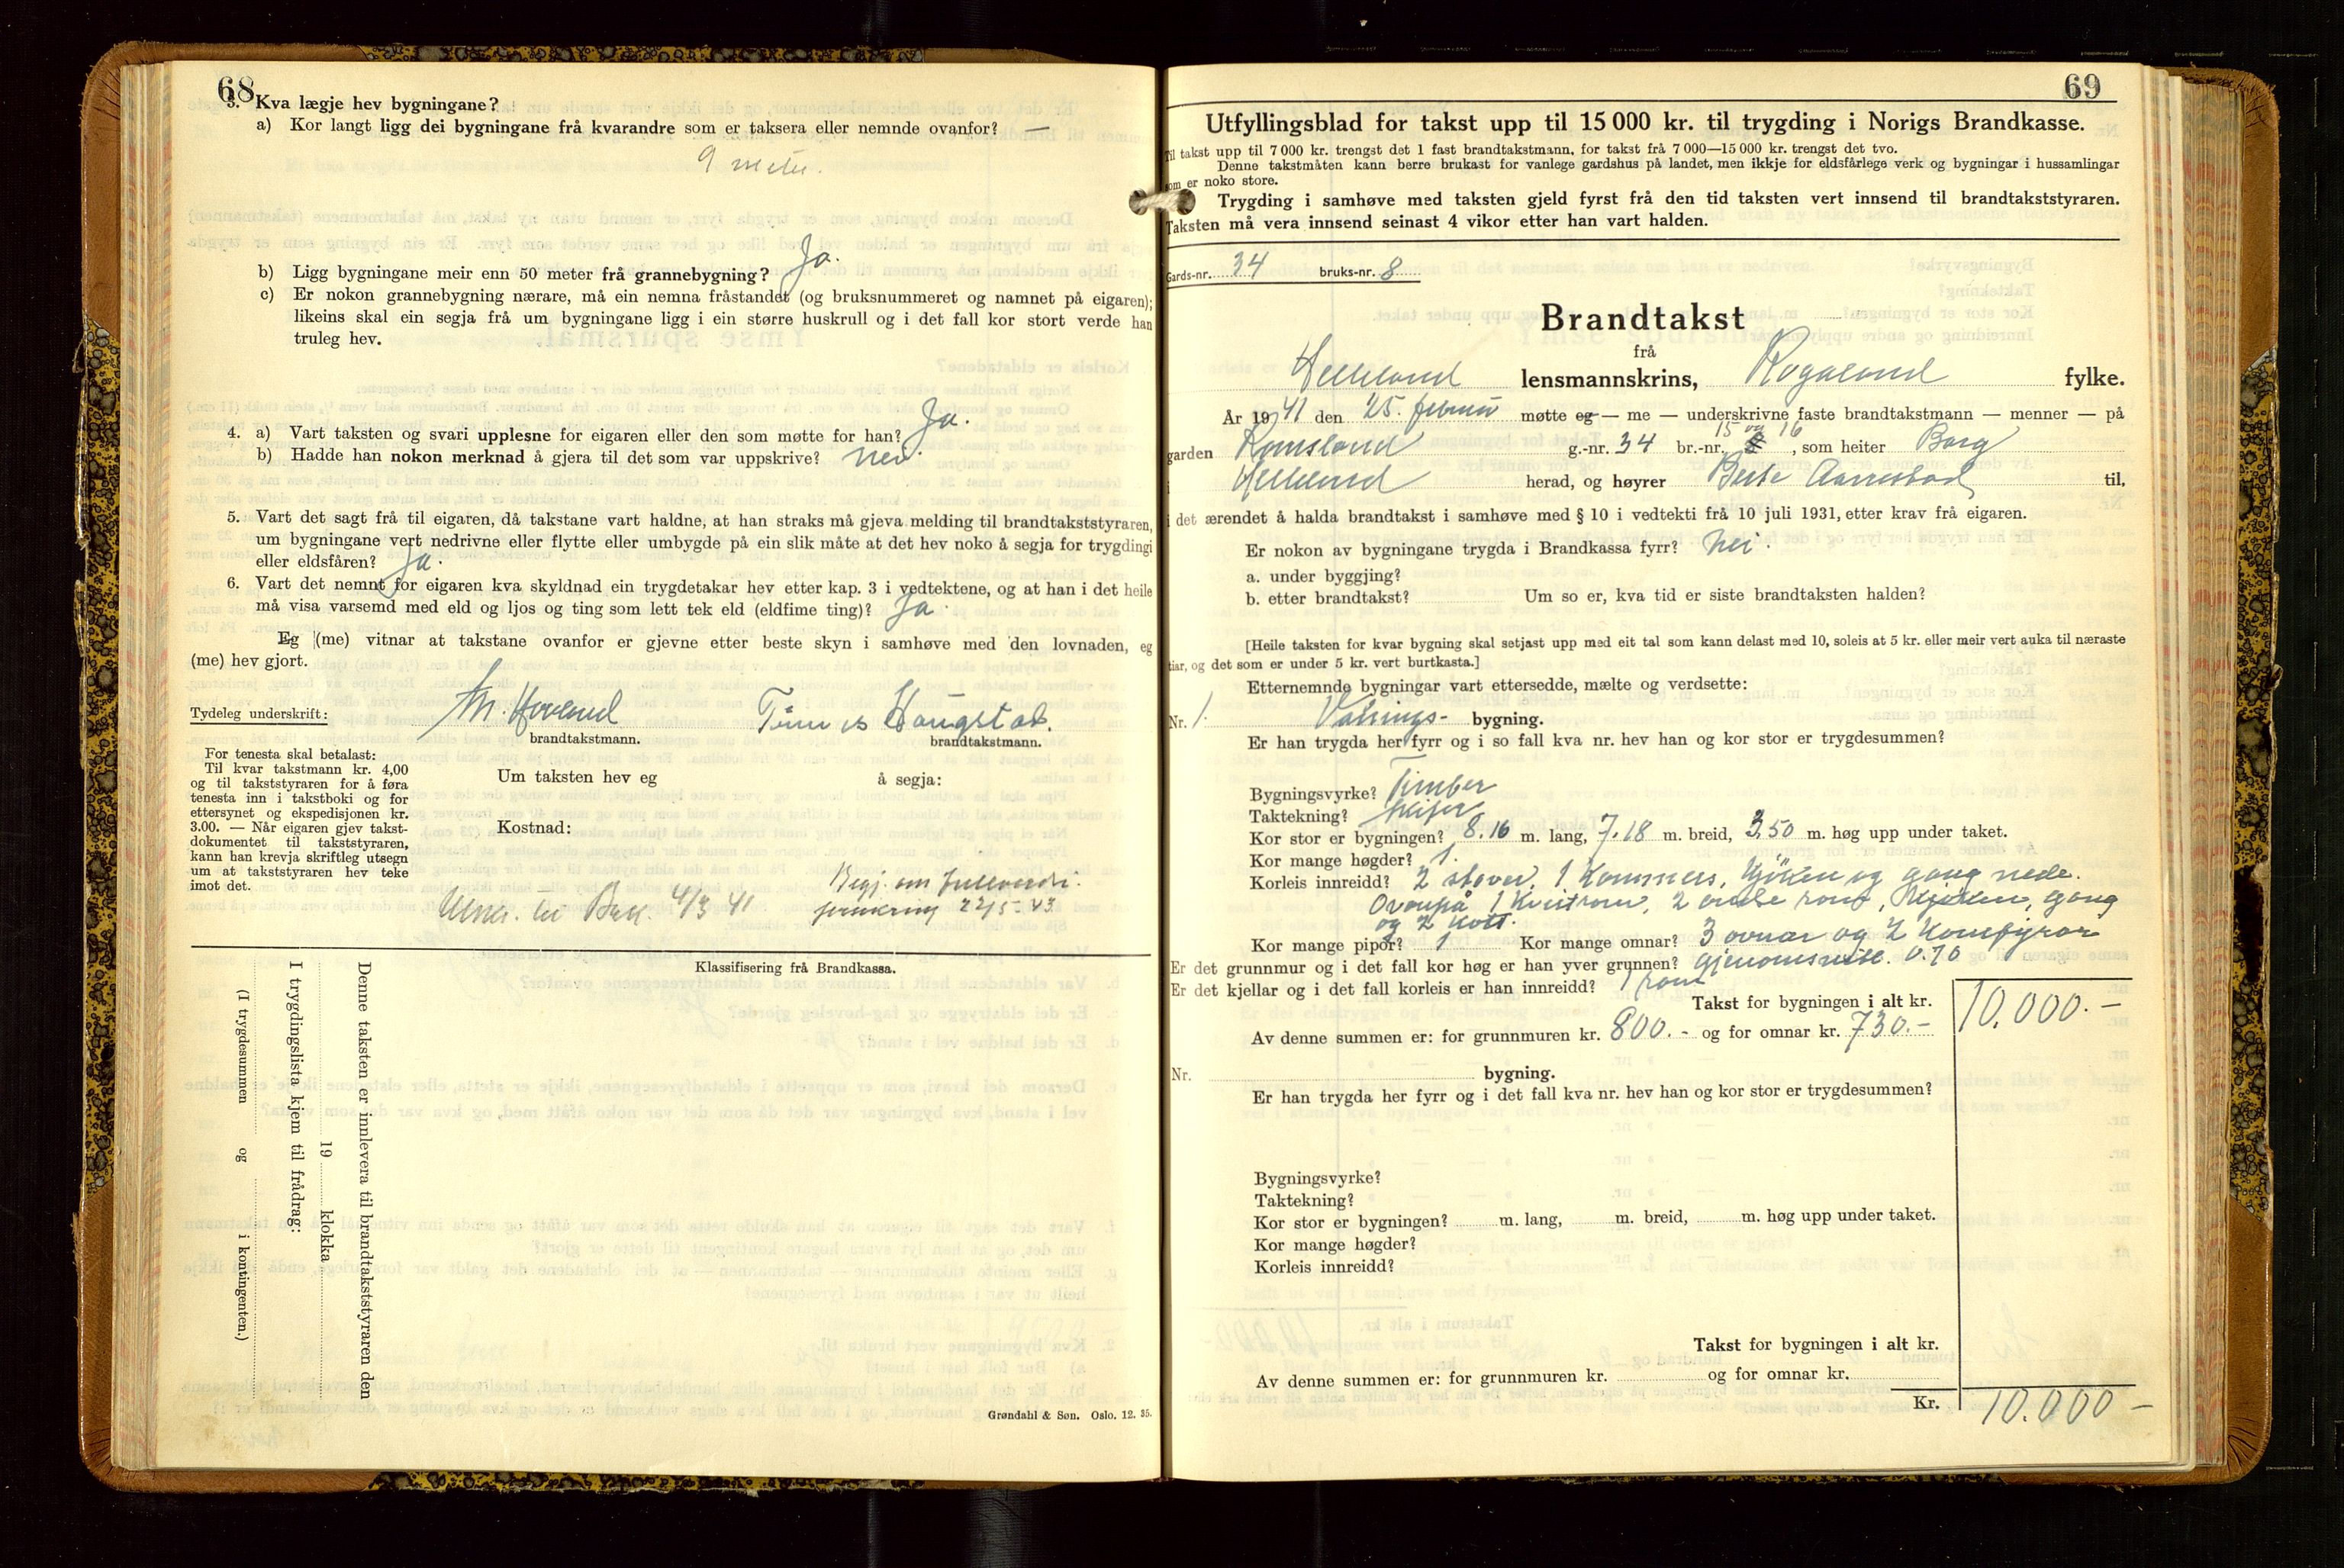 68
3. Kva lægje hev bygningane?
a) Kor langt ligg dei bygningane frå kvarandre som er taksera eller nemnde ovanfor? —
9 meter.
Ja.
b) Ligg bygningane meir enn 50 meter frå grannebygning?
c) Er nokon grannebygning nærare, må ein nemna fråstandet (og bruksnummeret og namnet på eigaren);
likeins skal ein segja frå um bygningane ligg i ein større huskrull og i det fall kor stort verde han
truleg hev.
4. a) Vart taksten og svari upplesne for eigaren eller den som møtte for han? Ja.
b) Hadde han nokon merknad å gjera til det som var uppskrive? nei.
5. Vart det sagt frå til eigaren, då takstane vart haldne, at han straks må gjeva melding til brandtakststyraren,
um bygningane vert nedrivne eller flytte eller umbygde på ein slik måte at det hev noko å segja for trygdingi
eller eldsfåren? Ja.
6. Vart det nemnt for eigaren kva skyldnad ein trygdetakar hev etter kap. 3 i vedtektene, og at han i det heile
må visa varsemd med eld og ljos og ting som lett tek eld (eldfime ting)? Ja.
Eg (me) vitnar at takstane ovanfor er gjevne etter beste skyn i samhøve med den lovnaden, eg
(me) hev gjort.
Tydeleg underskrift: M. Hovland
brandtakstmann. brandtakstmann.
For tenesta skal betalast:
Til kvar takstmann kr. 4,00
og til takststyraren for å føra
tenesta inn i takstboki og for
ettersynet og ekspedisjonen kr.
3.00. — Når eigaren gjev takst-
dokumentet til takststyraren,
kann han krevja skriftleg utsegn
um at takststyraren hev teke
imot det.
Um taksten hev eg å segja:
Kostnad:
4/3 41
Begj. om
22/5-43.
Klassifisering frå Brandkassa.
Denne taksten er innlevera til brandtakststyraren den
19 klokka
I trygdingslista kjem til frådrag:
(I trygdesummen og i kontingenten.)
Grøndahl & Søn. Oslo. 12. 35.
69
Utfyllingsblad for takst upp til 15 000 kr. til trygding i Norigs Brandkasse.
Til takst upp til 7 000 kr. trengst det 1 fast brandtakstmann, for takst frå 7 000—15 000 kr. trengst det tvo.
Denne takstmåten kann berre brukast for vanlege gardshus på landet, men ikkje for eldsfårlege verk og bygningar i hussamlingar
som er noko store.
Trygding i samhøve med taksten gjeld fyrst frå den tid taksten vert innsend til brandtakststyraren.
Taksten må vera innsend seinast 4 vikor etter han vart halden.
Gards-nr. 34 bruks-nr. 8
Brandtakst
frå
Helleland lensmannskrins, Rogaland fylke.
År 1941 den 25. februar møtte eg — me — underskrivne faste brandtakstmann — menner — på
15 og 16
garden Ramsland g.-nr. 34 br.-nr. 8, som heiter Borg
i Helleland herad, og høyrer Berte Aarrestad til,
i det ærendet å halda brandtakst i samhøve med § 10 i vedtekti frå 10 juli 1931, etter krav frå eigaren.
Er nokon av bygningane trygda i Brandkassa fyrr? Nei.
a. under byggjing?
b. etter brandtakst? Um so er, kva tid er siste brandtaksten halden?
[Heile taksten for kvar bygning skal setjast upp med eit tal som kann delast med 10, soleis at 5 kr. eller meir vert auka til næraste
tiar, og det som er under 5 kr. vert burtkasta.]
Etternemnde bygningar vart ettersedde, mælte og verdsette:
Nr. 1. Vånings- bygning.
Er han trygda her fyrr og i so fall kva nr. hev han og kor stor er trygdesummen?
Bygningsvyrke? Timber
Taktekning? Skifer
Kor stor er bygningen? 8.16 m. lang, 7.18 m. breid, 3.50 m. høg upp under taket.
Kor mange høgder? 1.
Korleis innreidd? 2 stover, 1 Kammers, Kjöken og gang nede.
Ovenpå 1 Kvistrom, 2 andre rom, Kjöken, gang
og 2 Kott.
Kor mange pipor? 1 Kor mange omnar? 3 ovnar og 2 Komfyrar
Er det grunnmur og i det fall kor høg er han yver grunnen? gjenomsnitl. 0.70
Er det kjellar og i det fall korleis er han innreidd? 1 rom
Takst for bygningen i alt kr. 10.000.-
Av denne summen er: for grunnmuren kr. 800.- og for omnar kr. 730.-
Nr. bygning.
Er han trygda her fyrr og i det fall kva nr. hev han og kor stor er trygdesummen?
Bygningsvyrke?
Taktekning?
Kor stor er bygningen? m. lang, m. breid, m. høg upp under taket.
Kor mange høgder?
Korleis innreidd?
Takst for bygningen i alt kr.
Av denne summen er: for grunnmuren kr. og for omnar kr.
Kr. 10.000-